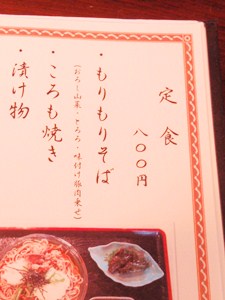 定食
八〇〇円
・もりもりそば
(おろし山菜・とろろ・味付け豚肉乗せ)
・ころも焼き
・漬け物